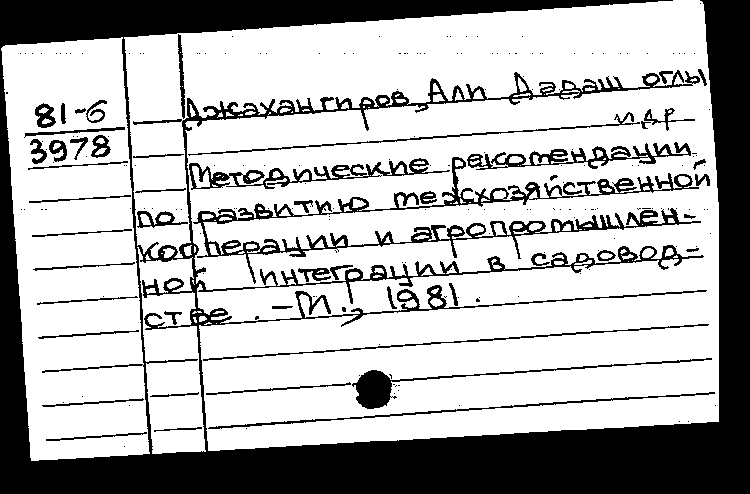 81-6
3978
Джахангиров, Али Дадаш оглы
и др
Методические рекомендации
по развитию межхозяйственной
кооперации и агропромышлен-
ной интеграции в садовод-
стве. - М., 1981.